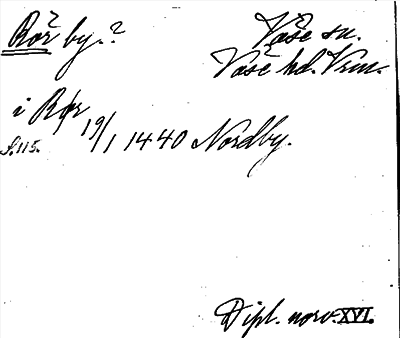 Rör by.? Väse sn.
Väse hd. Vrml.
i Rør
S. 115. 19/1 1440 Nordby.
Dipl. norv. XVI.